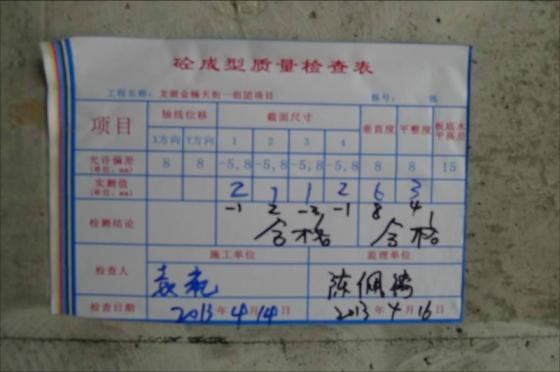 砼成型质量检查表
工程名称: 龙湖金楠天街一组团项目 栋号: 栋
项目 轴线位移 截面尺寸 垂直度 平整度 板底水平高差
X方向 Y方向 1 2 3 4
允许偏差 (单位: mm) 8 8 -5,8 -5,8 -5,8 -5,8 8 8 15
实测值 (单位: mm) 2 1 1 2 6 3
-1 2 -2 -1 8 4
检测结论 合格 合格
施工单位 监理单位
检查人 袁苑 陈佩
检查日期 2013年4月14日 2013年4月16日